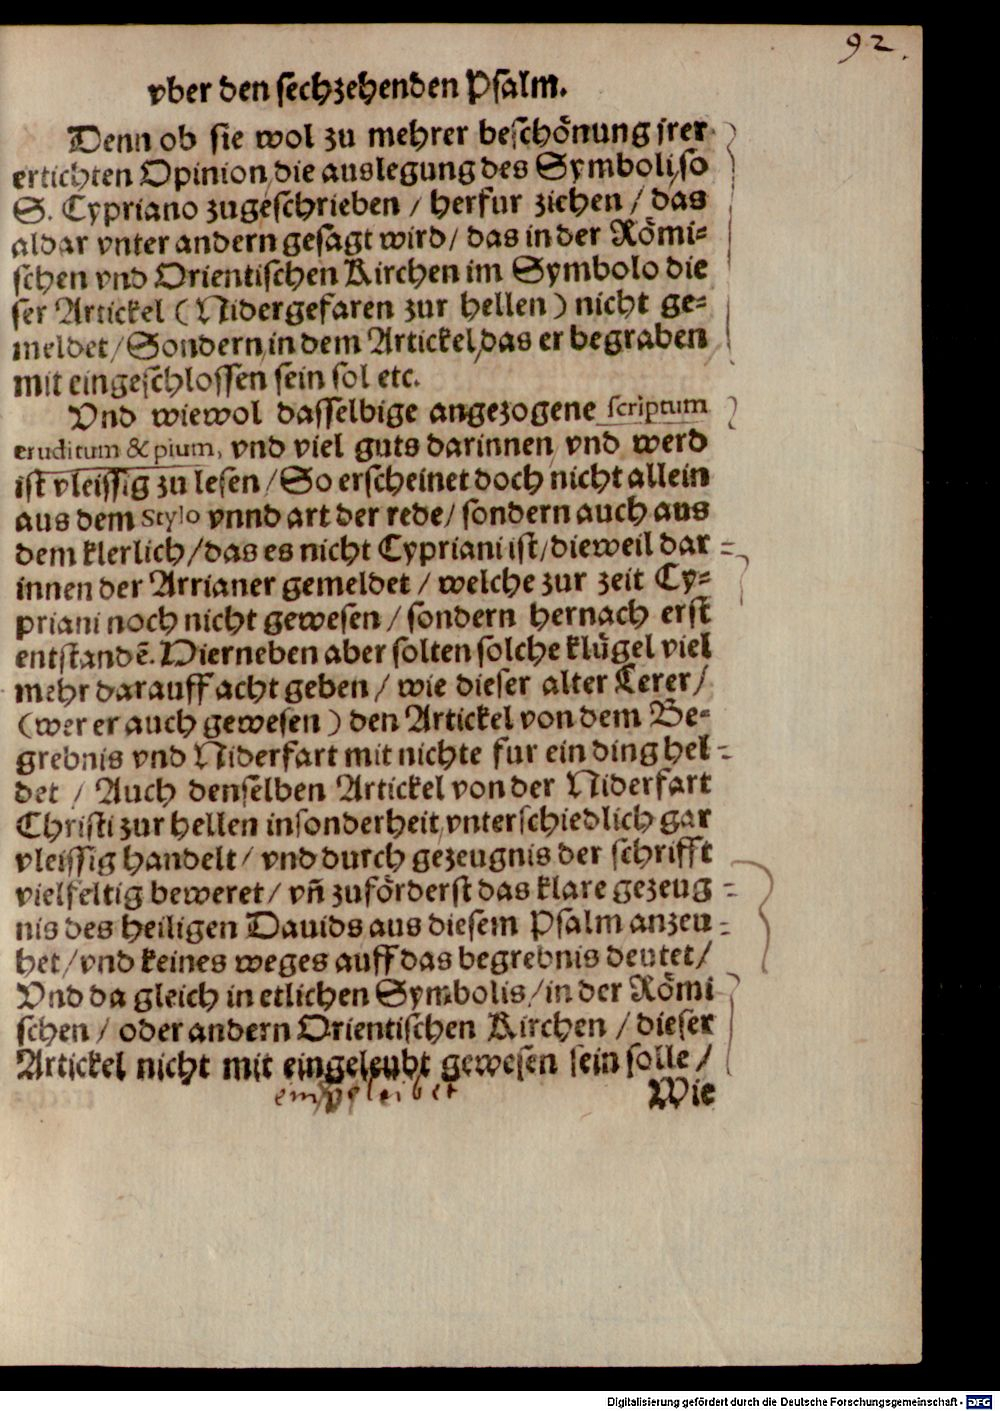 92.
vber den sechzehenden Psalm.
Denn ob sie wol zu mehrer beschönung jrer
ertichten Opinion, die auslegung des Symboli, so
S. Cypriano zugeschrieben / herfur ziehen / das
aldar vnter andern gesagt wird / das in der Römi=
schen vnd Orientischen Kirchen im Symbolo die
ser Artickel (Nidergefaren zur hellen) nicht ge=
meldet / Sondern, in dem Artickel, das er begraben
mit eingeschlossen sein sol etc.
Vnd wiewol dasselbige angezogene scriptum
eruditum & pium, vnd viel guts darinnen, vnd werd
ist vleissig zu lesen / So erscheinet doch nicht allein
aus dem Stylo vnnd art der rede / sondern auch aus
dem klerlich / das es nicht Cypriani ist / dieweil dar=
innen der Arrianer gemeldet / welche zur zeit Cy=
priani noch nicht gewesen / sondern hernach erst
entstandē. Hierneben aber solten solche klügel viel
mehr darauff acht geben / wie dieser alter Lerer /
(wer er auch gewesen) den Artickel von dem Be=
grebnis vnd Niderfart mit nichte fur ein ding hel=
det / Auch denselben Artickel von der Niderfart
Christi zur hellen insonderheit, vnterschiedlich gar
vleissig handelt / vnd durch gezeugnis der schrifft
vielfeltig beweret / vñ zuförderst das klare gezeug=
nis des heiligen Dauids aus diesem Psalm anzeu=
het / vnd keines weges auff das begrebnis deutet /
Vnd da gleich in etlichen Symbolis / in der Römi
schen / oder andern Orientischen Kirchen / dieser
Artickel nicht mit eingeleubt gewesen sein solle /
Wie
Digitalisierung gefördert durch die Deutsche Forschungsgemeinschaft - DFG